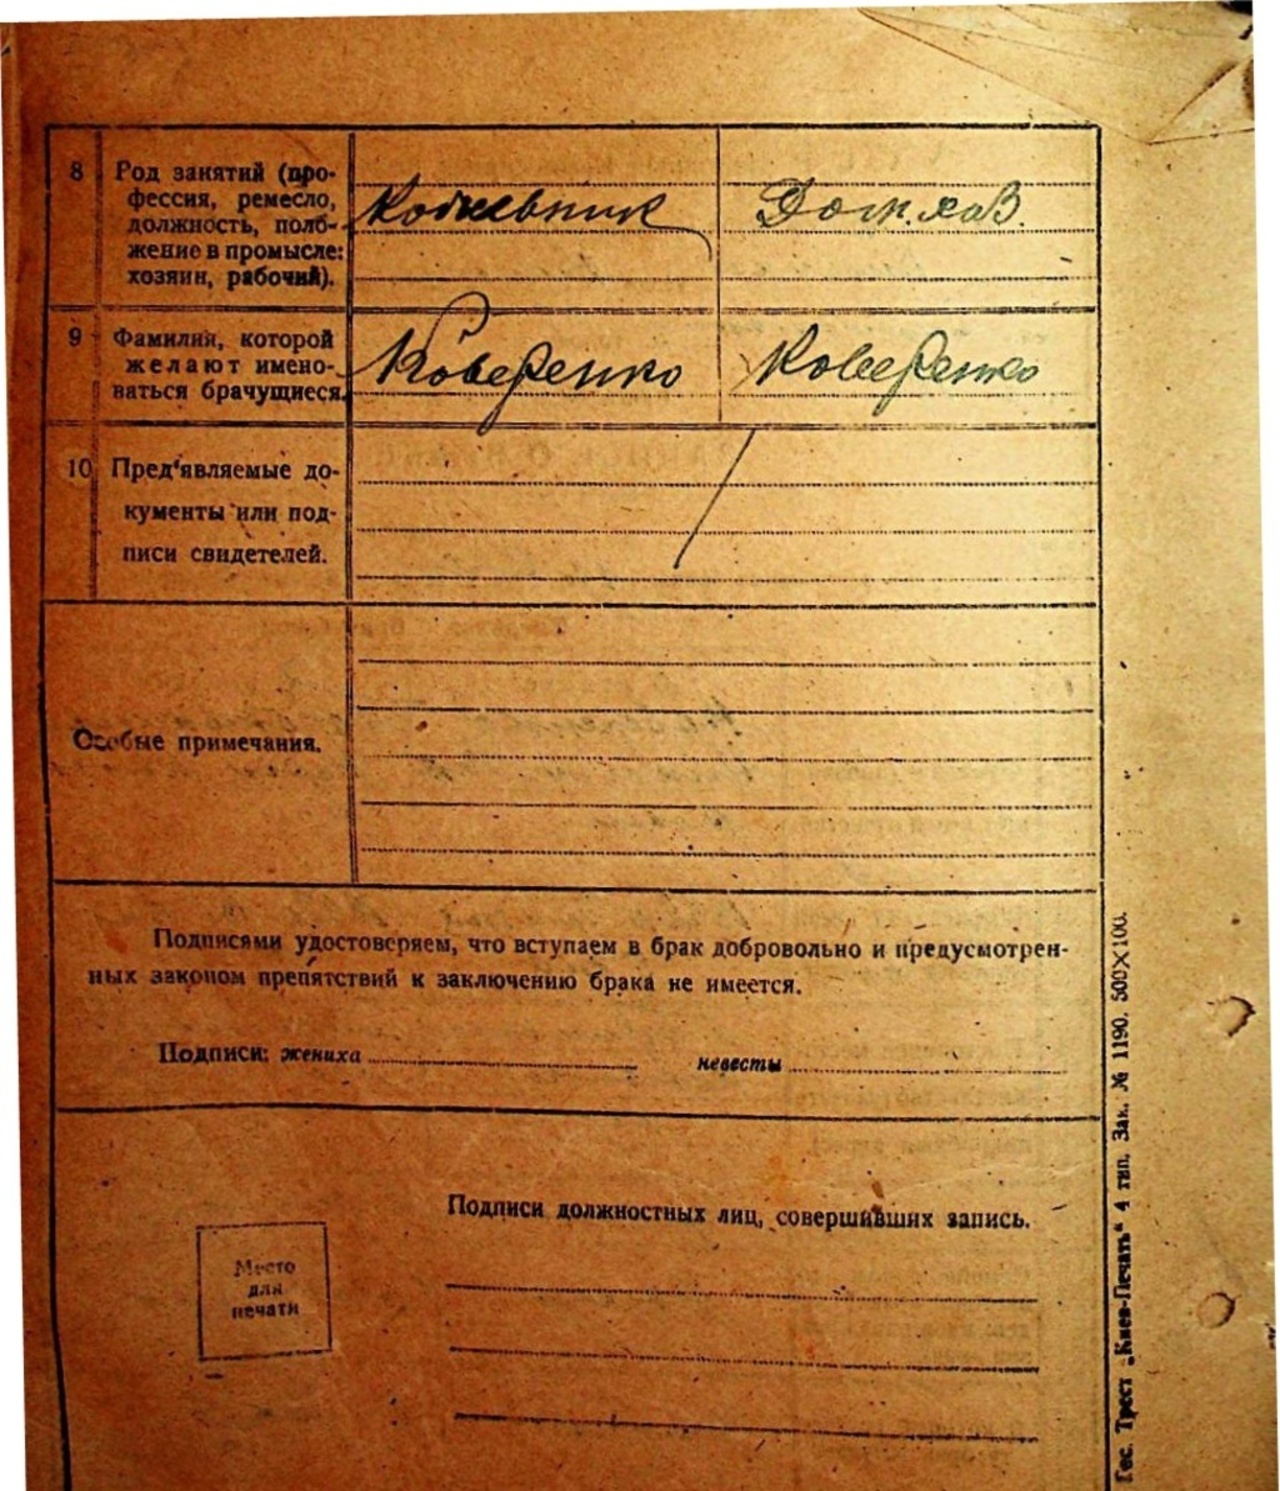 8 Род занятий (про-
фессия, ремесло,
должность, поло-
жение в промысле:
хозяин, рабочий).
Кожевник Дом. хоз.
9 Фамилия, которой
желают имено-
ваться брачущиеся.
Коверенко Коверенко
10 Пред'являемые до-
кументы или под-
писи свидетелей.
Особые примечания.
Подписями удостоверяем, что вступаем в брак добровольно и предусмотрен-
ных законом препятствий к заключению брака не имеется.
Подписи: жениха невесты
Подписи должностных лиц, совершивших запись.
Место
для
печати
Гос. Трест „Киев-Печать“ 4 тип. Зак. № 1190. 500×100.